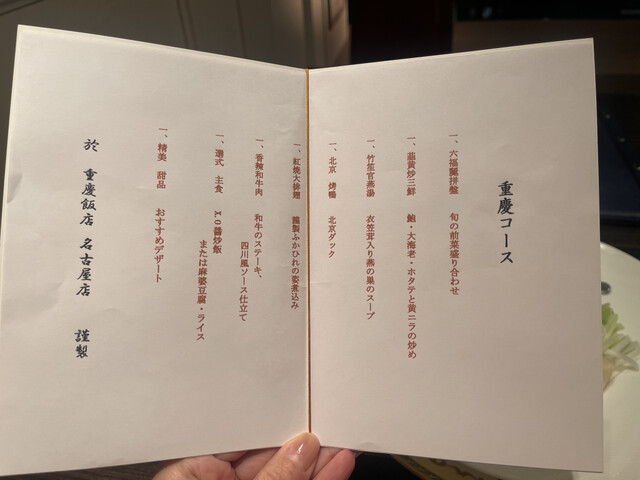 重慶コース
一、六福麗拼盤 旬の前菜盛り合わせ
一、韮黄炒三鮮 鮑・大海老・ホタテと黄ニラの炒め
一、竹笙官燕湯 衣笠茸入り燕の巣のスープ
一、北京烤鴨 北京ダック
一、紅焼大排翅 謹製ふかひれの姿煮込み
一、香辣和牛肉 和牛のステーキ、
四川風ソース仕立て
一、選式 主食 XO醤炒飯
または麻婆豆腐・ライス
一、精美 甜品 おすすめデザート
於 重慶飯店 名古屋店 謹製